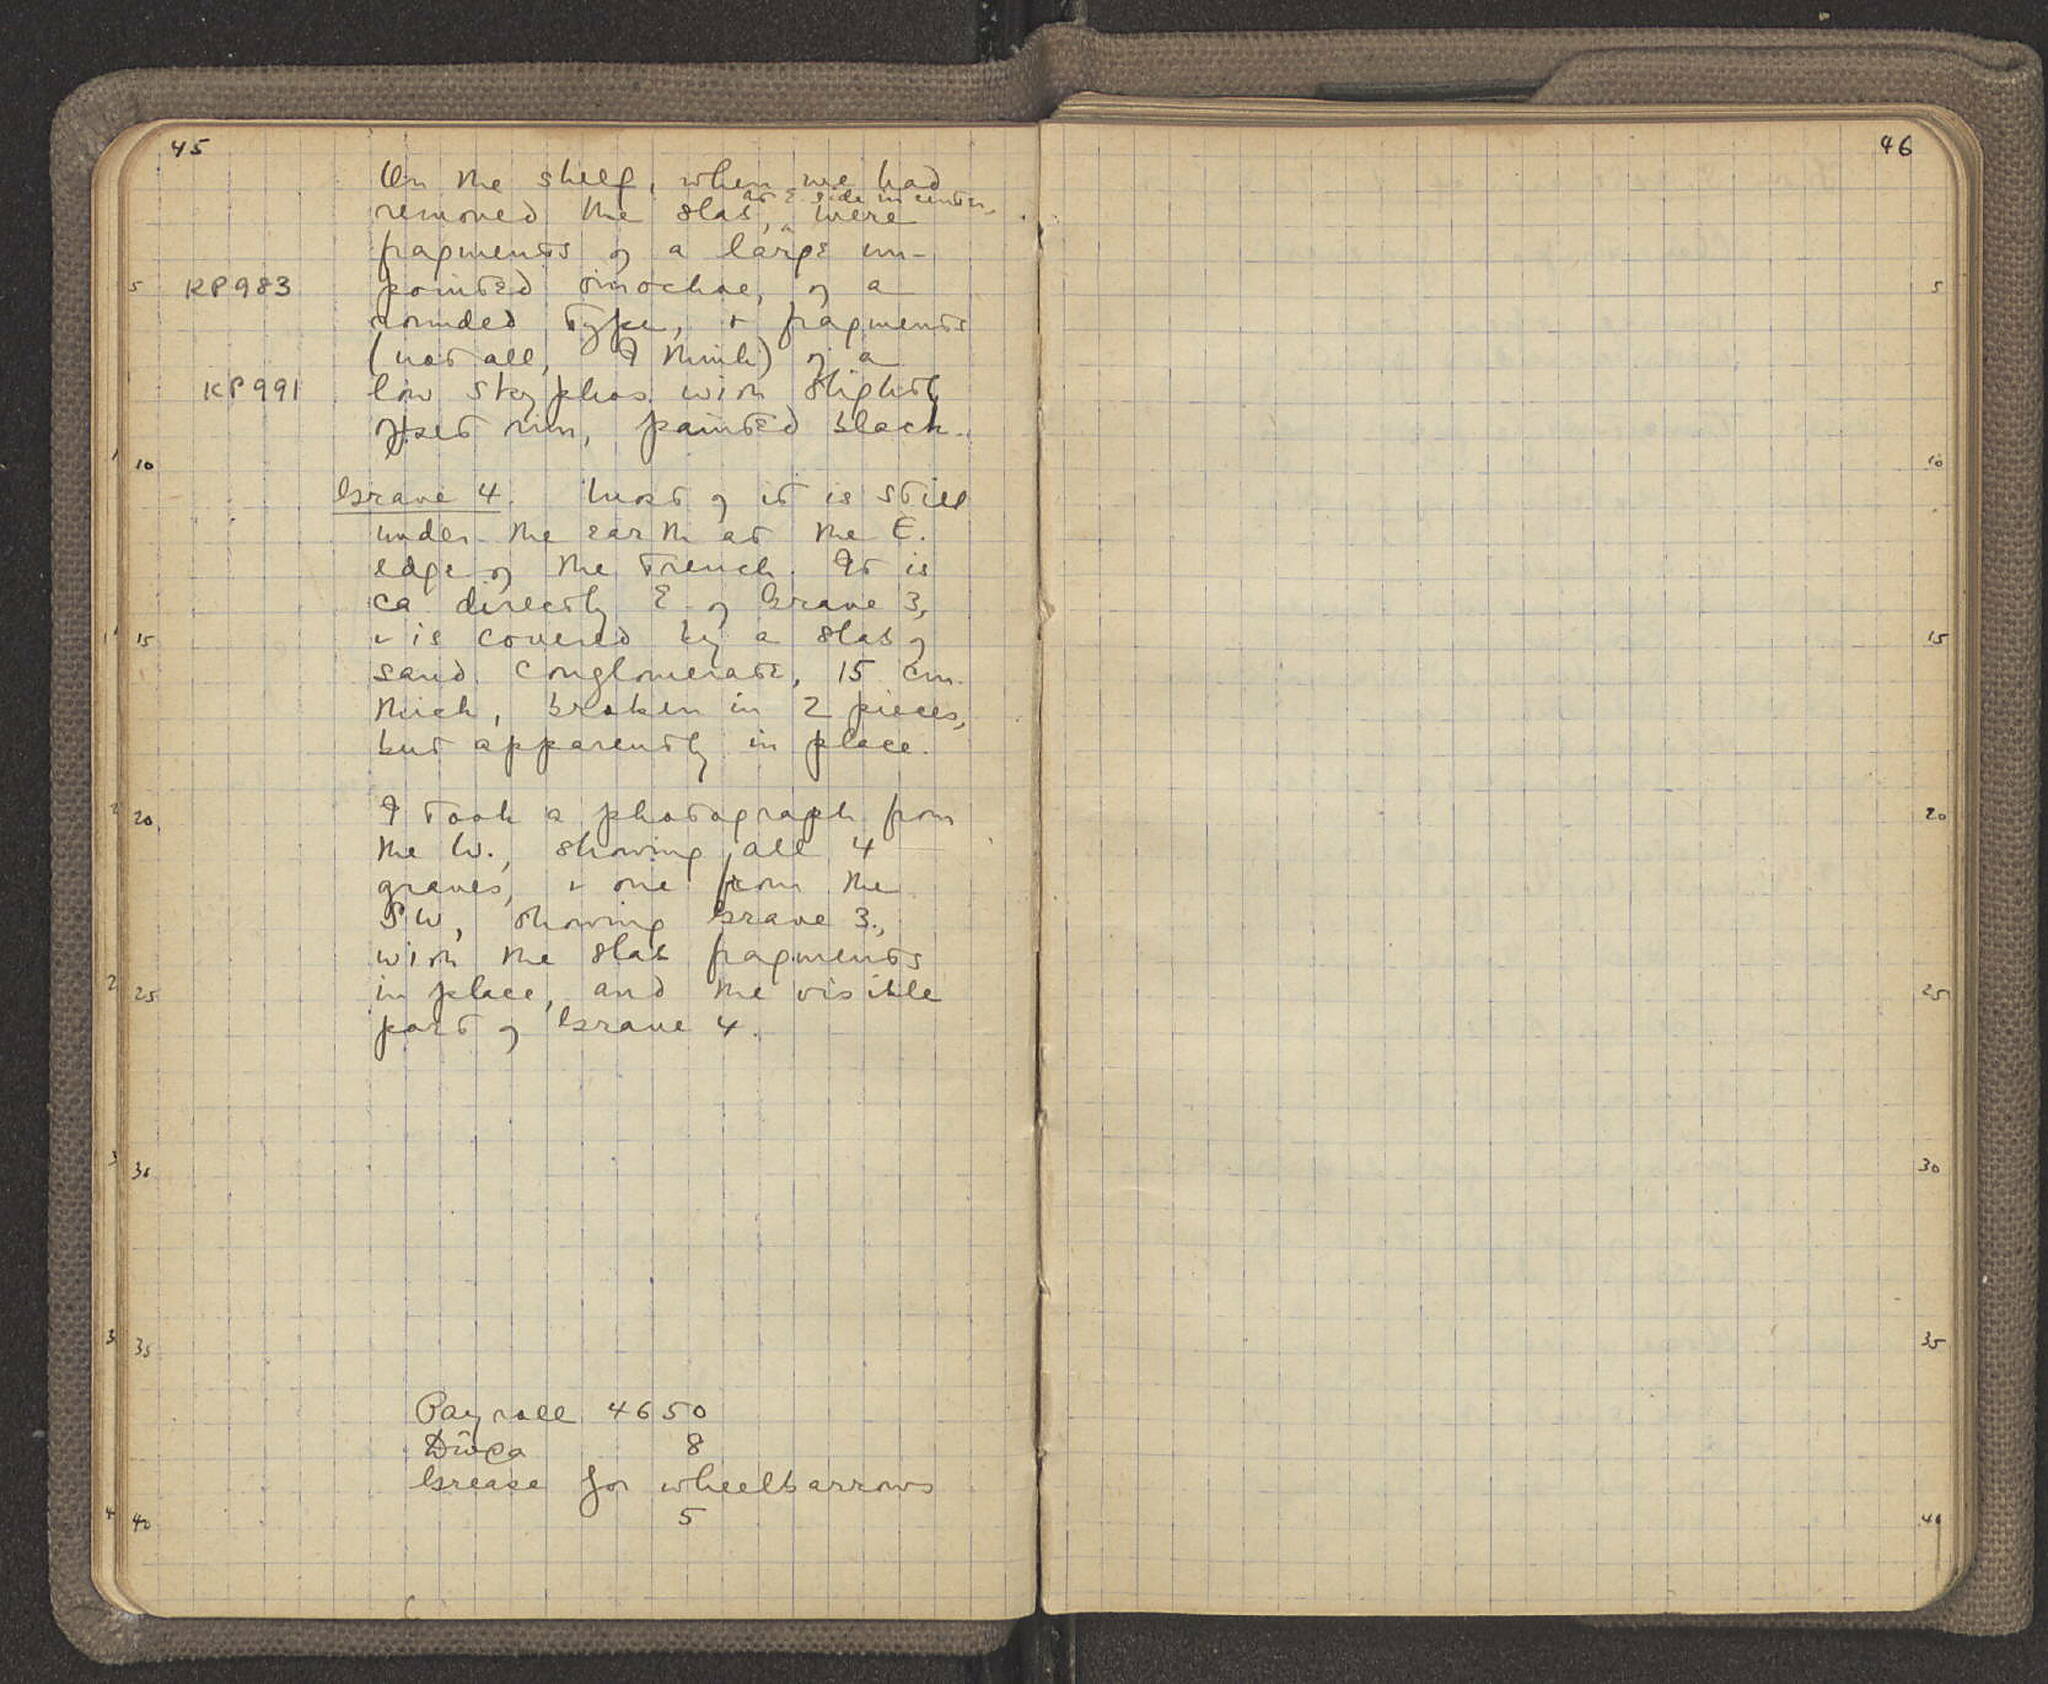 45
On the shelf, when we had
at E side in center,
removed the slab, were
fragments of a large un-
5 KP983 painted oinochoe, of a
rounded type, + fragments
(not all, I think) of a
KP991 low skyphos with slightly
offset rim, painted black.
10
Grave 4. Most of it is still
under the earth at the E.
edge of the trench. It is
ca directly E of Grave 3,
15 + is covered by a slab of
sand conglomerate, 15 cm.
thick, broken in 2 pieces,
but apparently in place.
20 I took a photograph from
the W., showing all 4
graves, + one from the
SW, showing Grave 3,
with the slab fragments
25 in place, and the visible
part of Grave 4.
30
35
Payroll 4650
8
Grease for wheelbarrows
40 5
46
5
10
15
20
25
30
35
40